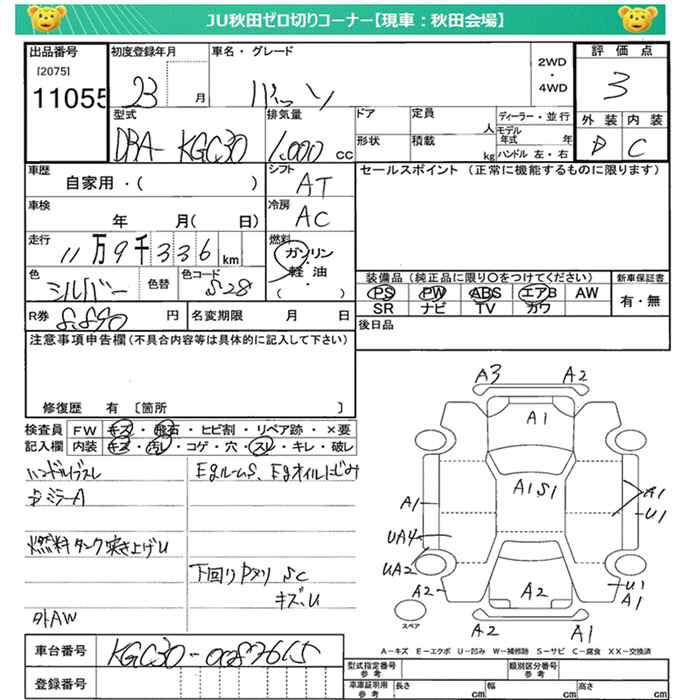 JU秋田ゼロ切りコーナー【現車：秋田会場】
出品番号
[2075]
11055
初度登録年月
23 月
車名・グレード
パッソ
2WD
・
4WD
評価点
3
外装 内装
D C
型式
DBA- KGC30
排気量
1,000 cc
ドア
形状
定員
人
積載
kg
ディーラー・並行
モデル年式 年
ハンドル 左・右
車歴
自家用・( )
シフト
AT
セールスポイント (正常に機能するものに限ります)
車検
年 月( 日)
冷房
AC
走行
11万9千336km
燃料
ガソリン
・
軽油
・
( )
色
シルバー
色替
色コード
S28
装備品 (純正品に限り○をつけてください)
新車保証書
PS PW ABS エアB AW
SR ナビ TV カワ
有・無
R券
8,890 円
名変期限 月 日
後日品
注意事項申告欄 (不具合内容等は具体的に記入して下さい)
修復歴 有 〔箇所 〕
検査員記入欄
FW キズ・飛石・ヒビ割・リペア跡・×要
内装 キズ・汚レ・コゲ・穴・スレ・キレ・破レ
ハンドルスレ
EgルームS、Egオイルにじみ
ミラーA
燃料タンク突き上げU
下回り サビ SC
キズ、U
外AW
A3 A2
A1
A1S1
A1
A1
U1
UA4
UA2
A2
A2
U1
A1
A2 A1
スペア
A－キズ E－エクボ U－凹み W－補修跡 S－サビ C－腐食 XX－交換済
車台番号
KGC30-0087665
登録番号
型式指定番号
参考
類別区分番号
参考
車庫証明用
参考
長さ cm 幅 cm 高さ cm